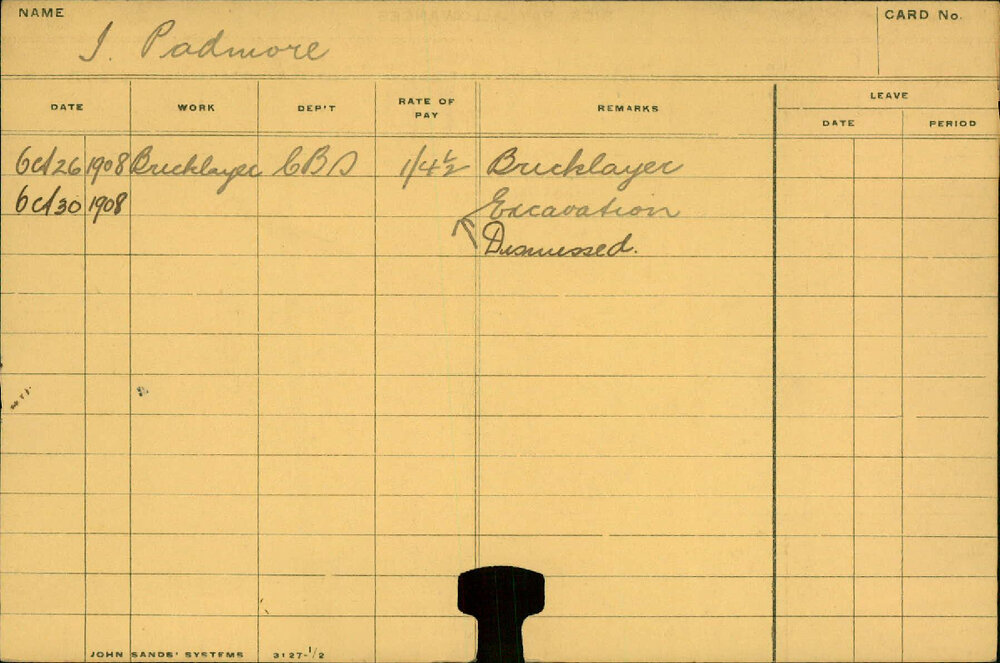 NAME
J. Padmore
CARD No.
DATE WORK DEP'T RATE OF PAY REMARKS LEAVE
DATE PERIOD
Oct 26 1908 Bricklayer CBD 1/4½ Bricklayer
Oct 30 1908 Excavation
Dismissed.
JOHN SANDS' SYSTEMS 3127-1/2